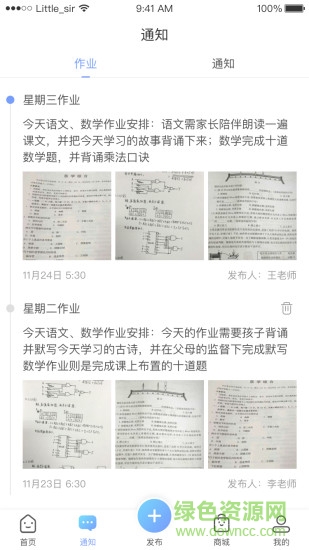 Little_sir 9:41 AM 100%
通知
作业 通知
星期三作业
今天语文、数学作业安排：语文需家长陪伴朗读一遍
课文，并把今天学习的故事背诵下来；数学完成十道
数学题，并背诵乘法口诀
11月24日 5:30 发布人：王老师
星期二作业
今天语文、数学作业安排：今天的作业需要孩子背诵
并默写今天学习的古诗，并在父母的监督下完成默写
数学作业则是完成课上布置的十道题
11月23日 6:30 发布人：李老师
首页 通知 发布 商城 我的
绿色资源网
www.downcc.com